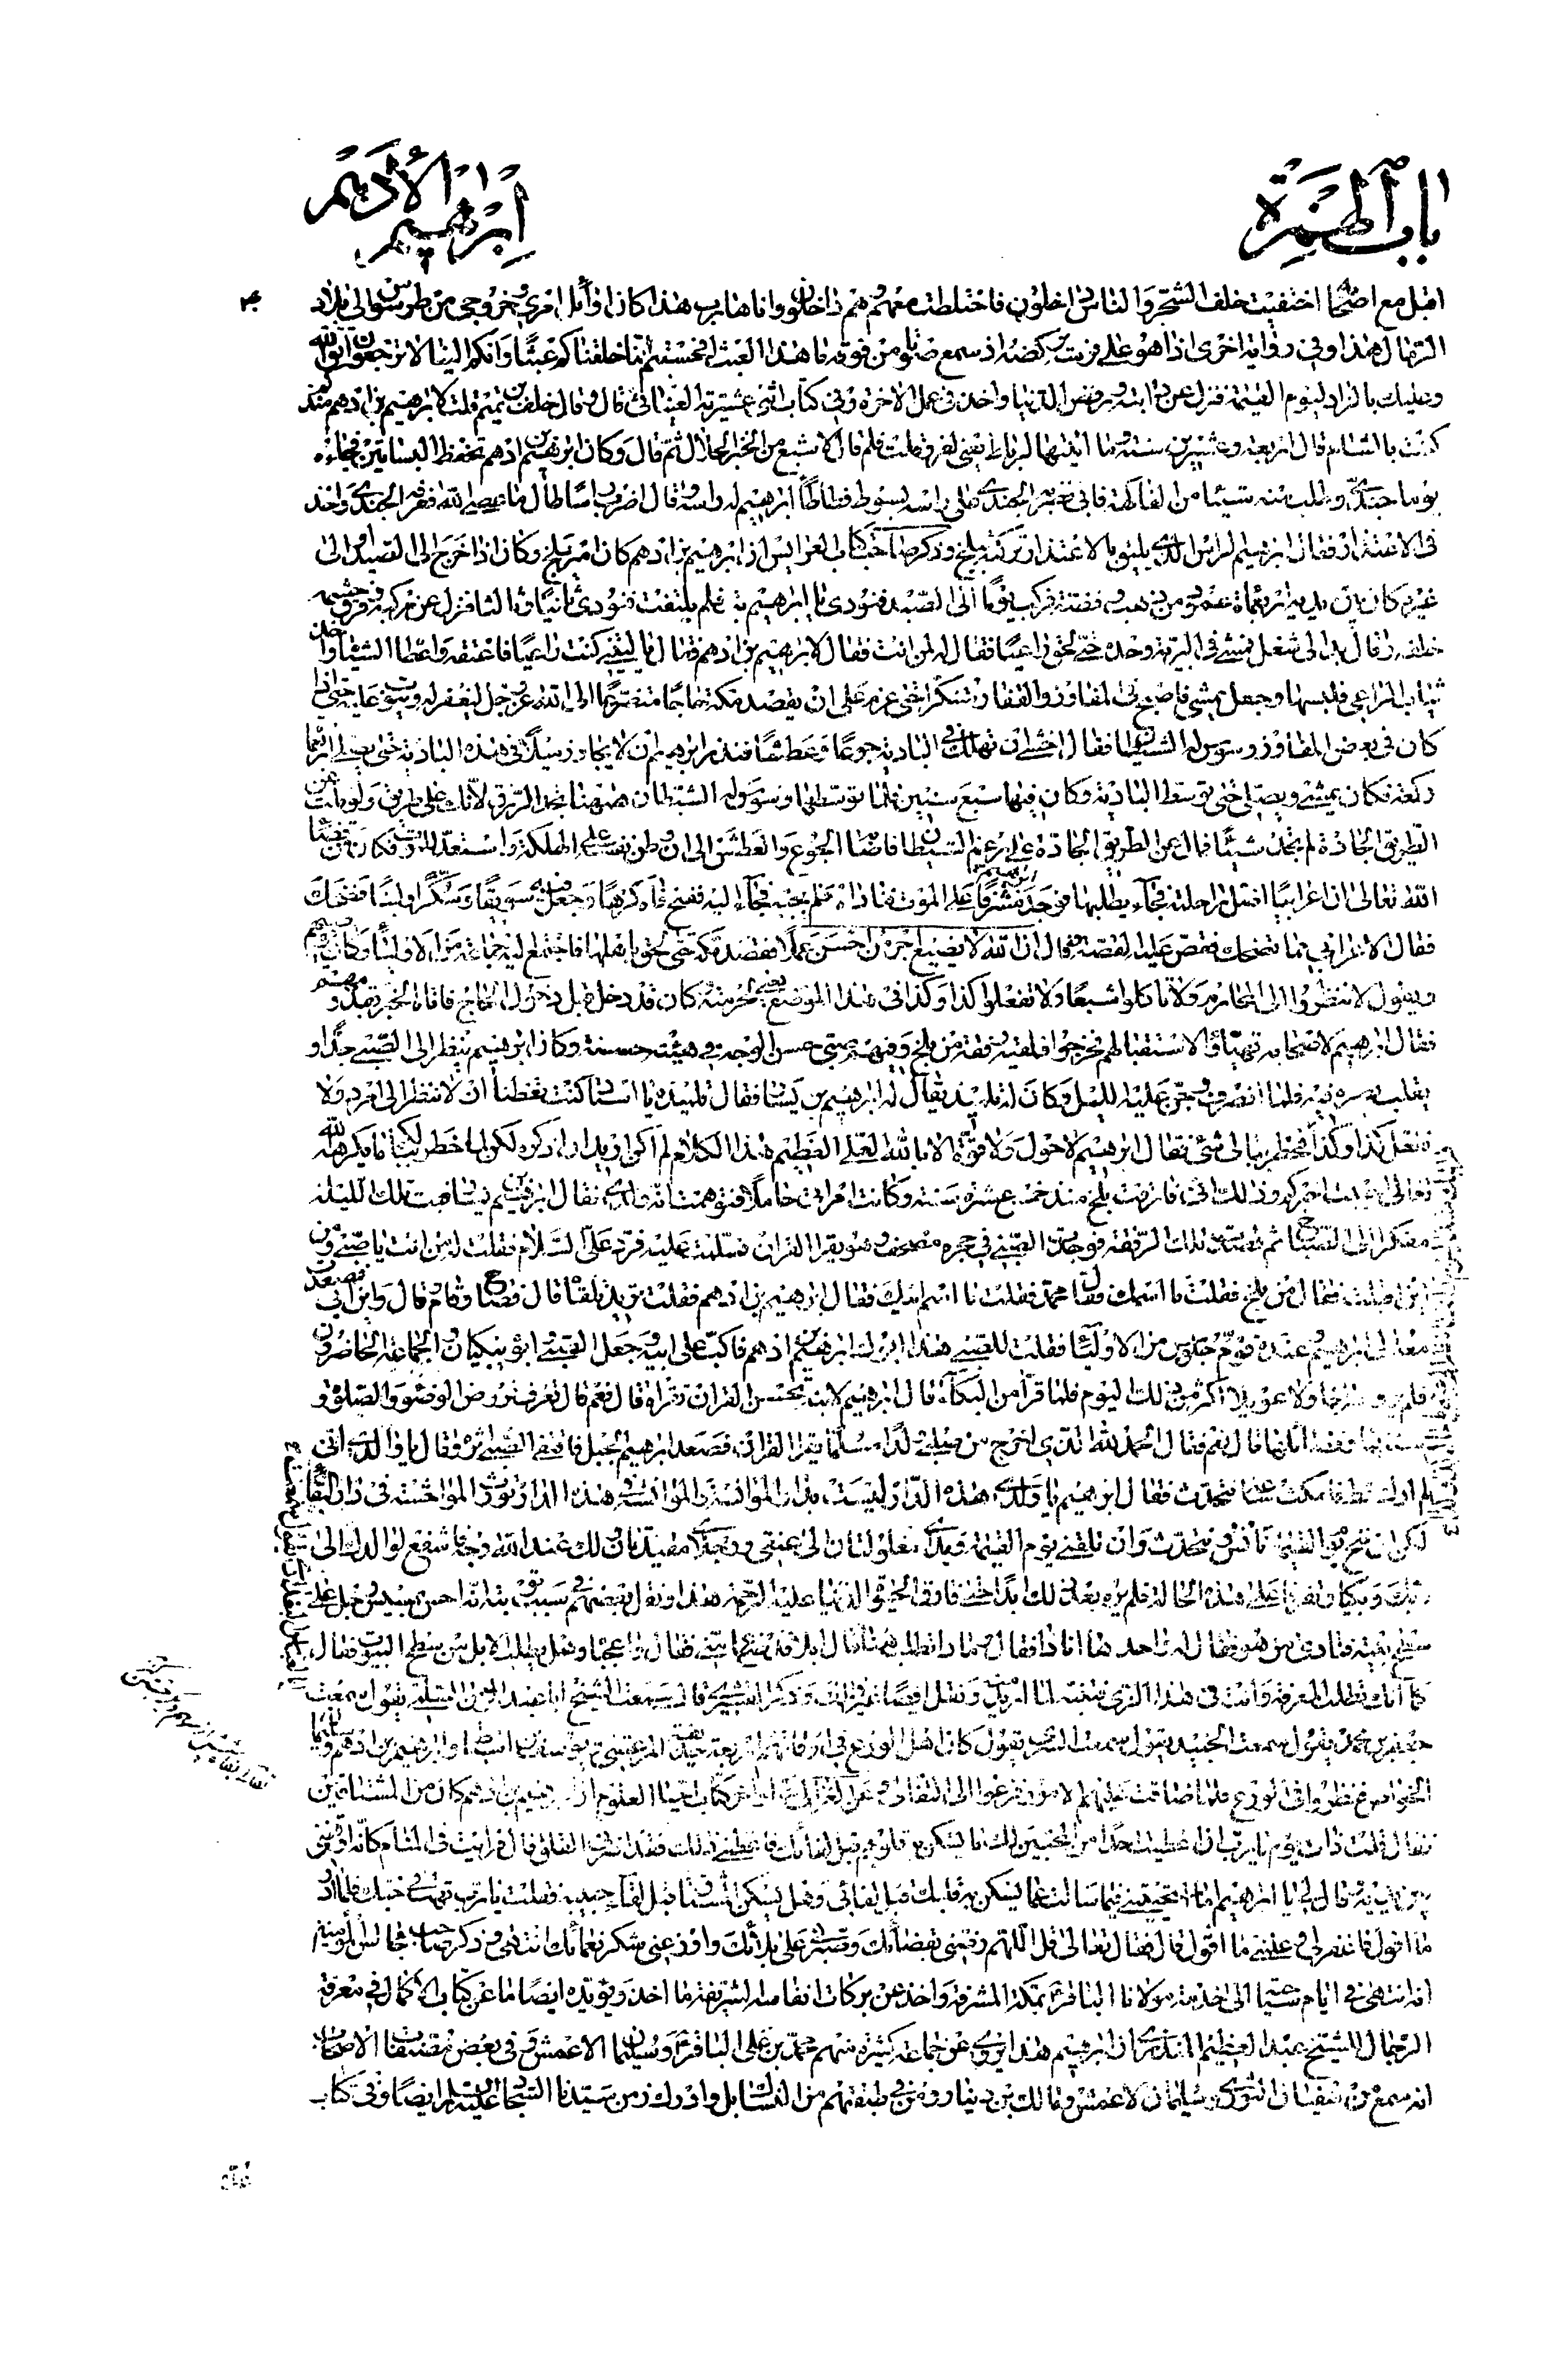 باب الهمزة
إبرهيم الأديم
اقبل مع اصحابه اختفيت خلف الشجر والناس داخلون فاختلطت معهم وهم داخلون وانا هارب هذا كان اوايل امرى وخروجى من طرسوس الى بلاد
الرمال هذا وفى رواية اخرى اذا هو على فرسه يركضه اذ سمع صوتا من فوقه ما هذا العبث افحسبتم انما خلقناكم عبثا وانكم الينا لا ترجعون اتق الله
وعليك بالزاد ليوم القيمة فنزل عن دابته ورفض الدنيا واخذ فى عمل الاخرة وفى كتاب اثنى عشرية العينائى قال وقال خلف بن تميم قلت لابرهيم بن ادهم منذ كم
كنت بالشام قال اربعة وعشرين سنة ما اتيتها لرباط يعنى لغزو قلت فلم قال لاشبع من الخبز الحلال ثم قال وكان ابرهيم بن ادهم يحفظ البساتين فجاءه
يوما جندى وطلب منه شيئا من الفاكهة فابى فضربه الجندى على راسه بسوط فطاطا ابرهيم له راسه وقال اضرب راسا طال ما عصى الله فعرفه الجندى واخذ
فى الاعتذار فقال ابرهيم الراس الذى يليق بالاعتذار تركته ببلخ وذكر صاحب كتاب العرايس ان ابرهيم بن ادهم كان امير بلخ وكان اذا خرج الى الصيد او الى
غيره كان بين يديه اربعماة عمود من ذهب وفضة فركب يوما الى الصيد فنودى يا ابرهيم فلم يلتفت فنودى ثانيا وثالثا فنزل عن مركبه وفرق حشمه
خلفه وقال بدا لى شغل فمشى فى البرية وحده حتى لحق راعيا فقال له لمن انت فقال لابرهيم بن ادهم فقال يا ليتنى كنت راعيا فاعتقه واعطاه الشياه واخذ
ثياب الراعى فلبسها وجعل يمشى فاصبح فى المفاوز والقفار متنكرا حتى عزم على ان يقصد مكة حاجا متضرعا الى الله عز وجل ليغفر له ويتوب عليه حتى اذا
كان فى بعض المفاوز وسوس له الشيطان فقال اخشى ان تهلك فى البادية جوعا وعطشا فنذر ابرهيم ان لا يجاوز ميلا فى هذه البادية حتى يصلى اربعماة
ركعة فكان يمشى ويصلى حتى توسط البادية وكان فيها سبع سنين فلما توسطها وسوس له الشيطان ههنا تجد الرزق لانك على طريق ولو ملت عن
الطريق الجادة لم تجد شيئا فمال عن الطريق الجادة على رغم الشيطان فاصابه الجوع والعطش الى ان وطن نفسه على الهلكة واستعد للموت فكان من قضاء
الله تعالى ان اعرابيا اضل راحلته فجاء يطلبها فوجد ابرهيم مشرفا على الموت فناداه فلم يجبه فجاء اليه ففتح فاه كرها وجعل فيه سويقا وسكرا ولبنا فضحك
فقال الاعرابى مما تضحك فقص عليه القصة وقال ان الله لا يضيع اجر من احسن عملا فقصد مكة حتى لحق باهلها فاجتمع اليه جماعة من الاولياء وكان ينهيهم
ويقول لا تنظروا الى المحارم ولا تاكلوا شبعا ولا تفعلوا كذا وكذا فى هذا الموضع يعنى لحرمته كان قد دخل قبل دخول الحاج فاتاه الخبر بقدومهم
فقال ابرهيم لاصحابه تهياوا لاستقبالهم فخرجوا فلقيته رفقة من بلخ وفيهم صبى حسن الوجه فى هيئة حسنة وكان ابرهيم ينظر الى الصبى جدا و
يقلب بصره فيه فلما انصرف وجن عليه الليل وكان له تلميذ يقال له ابرهيم بن يسار فقال تلميذه يا استاد كنت تعظنا ان لا ننظر الى امرد ولا
نفعل كذا وكذا فخطر ببالى شئ فقال ابرهيم لا حول ولا قوة الا بالله العلى العظيم هذا الكلام لم اكن اريد ان اذكره لكن لما خطر ببالك ما يكرهه الله
تعالى اخبرك وذلك انى فارقت بلخ منذ خمسة عشرة سنة وكانت امراتى حاملا فتوهمت انه ولدى فقال ابرهيم بن يسار فبت تلك الليلة
متفكرا الى الصباح ثم قصدت تلك الرفقة فوجدت الصبى فى حجره مصحف وهو يقرا القران فسلمت عليه فرد على السلام فقلت له من انت يا صبى ومن
اين طلبت فقال من بلخ فقلت ما اسمك فقال محمد فقلت ما اسم ابيك فقال ابرهيم بن ادهم فقلت تريد تلقاه قال فصاح وقام وقال واين ابى فصعدت
معه الى ابرهيم وعنده قوم جلوس من الاولياء فقلت للصبى هذا ابوك ابرهيم بن ادهم فاكب على ابيه وجعل الصبى وابوه يبكيان والجماعة الحاضرون
فلم يرو صراخا ولا عويلا اكثر من ذلك اليوم فلما قرا من البكاء قال ابرهيم لابنه تحسن القران تقراه قال نعم قال تعرف فروض الوضوء والصلوة و
سننهما وفقه امرهما قال نعم فقال الحمد لله الذى اخرج من صلبى ولدا مسلما يقرا القران فصعد ابرهيم الجبل فاقفى الصبى اثره وقال يا والدى انى
لم ارك قط فامكث عندنا نتحدث فقال ابرهيم يا ولدى هذه الدار ليست بدار الموانسة والموانسة فى هذه الدار تورث المواحشة فى دار البقاء
لكن ان نجونا يوم القيمة نانس ونتحدث وان تلقنى يوم القيمة ويدى مغلولتان الى عنقى ورجلاى مقيدتان ولك عند الله وجه فاشفع لوالدك الى
ربك وبكيا وتفرقا على هذه الحالة فلم يره بعد ذلك ابدا حتى فارق الحيوة الدنيا عليه الرحمة هذا ونقل بعضهم فى سبب توبته انه احس بحسيس رجل على
سطح بيته فنادى من هو فقال له واحد ها انا ذا فقال ما ذا تطلب ههنا قال ابلا قد ضيعتها فقال واعجبا وهل يطلب الابل من سطح البيوت فقال
كما انك تطلب المعرفة وانت فى هذا الزى
جعفر بن محمد يقول سمعت الجنيد يقول سمعت السرى يقول كان اهل الورع فى اوقاتهم اربعة حذيفة المرعشى ويوسف بن اسباط وابرهيم بن ادهم وسليمان
الخواص فنظروا فى الورع فلما ضاقت عليهم الامور فزعوا الى التقلل
فقال قلت ذات يوم يا رب ان اعطيت احدا من المحبين لك ما يسكن به قلوبهم قبل لقائك فاعطنى ذلك فقد اضر بى القلق قال فرايت فى المنام كانه اوقفنى
بين يديه وقال لى يا ابرهيم اما استحييت منى ان تسالنى ما يسكن به قلبك قبل لقائى وهل يسكن المشتاق قبل لقاء حبيبه فقلت يا رب تهت فى حبك فلم ادر
ما اقول فاغفر لى وعلمنى ما اقول قال فقال تعالى قل اللهم رضنى بقضائك وصبرنى على بلائك واوزعنى شكر نعمائك انتهى وذكر صاحب مجالس المؤمنين
انه انتهى فى ايام سياحته الى خدمة مولانا الباقر بمكة المشرفة واخذ عن بركات انفاسه الشريفة ما اخذ ويؤيده ايضا ما عن كتاب الاكمال فى معرفة
الرجال للشيخ عبد العظيم المنذرى ان ابرهيم هذا يروى عن جماعة كثيرة منهم محمد بن على الباقر وسليمان الاعمش وفى بعض مصنفات الاصحاب
انه سمع من سفيان الثورى وسليمان الاعمش ومالك بن دينار ومن فى طبقتهم من النساك بل وادرك زمن سيدنا السجاد عليه السلام ايضا وفى كتاب